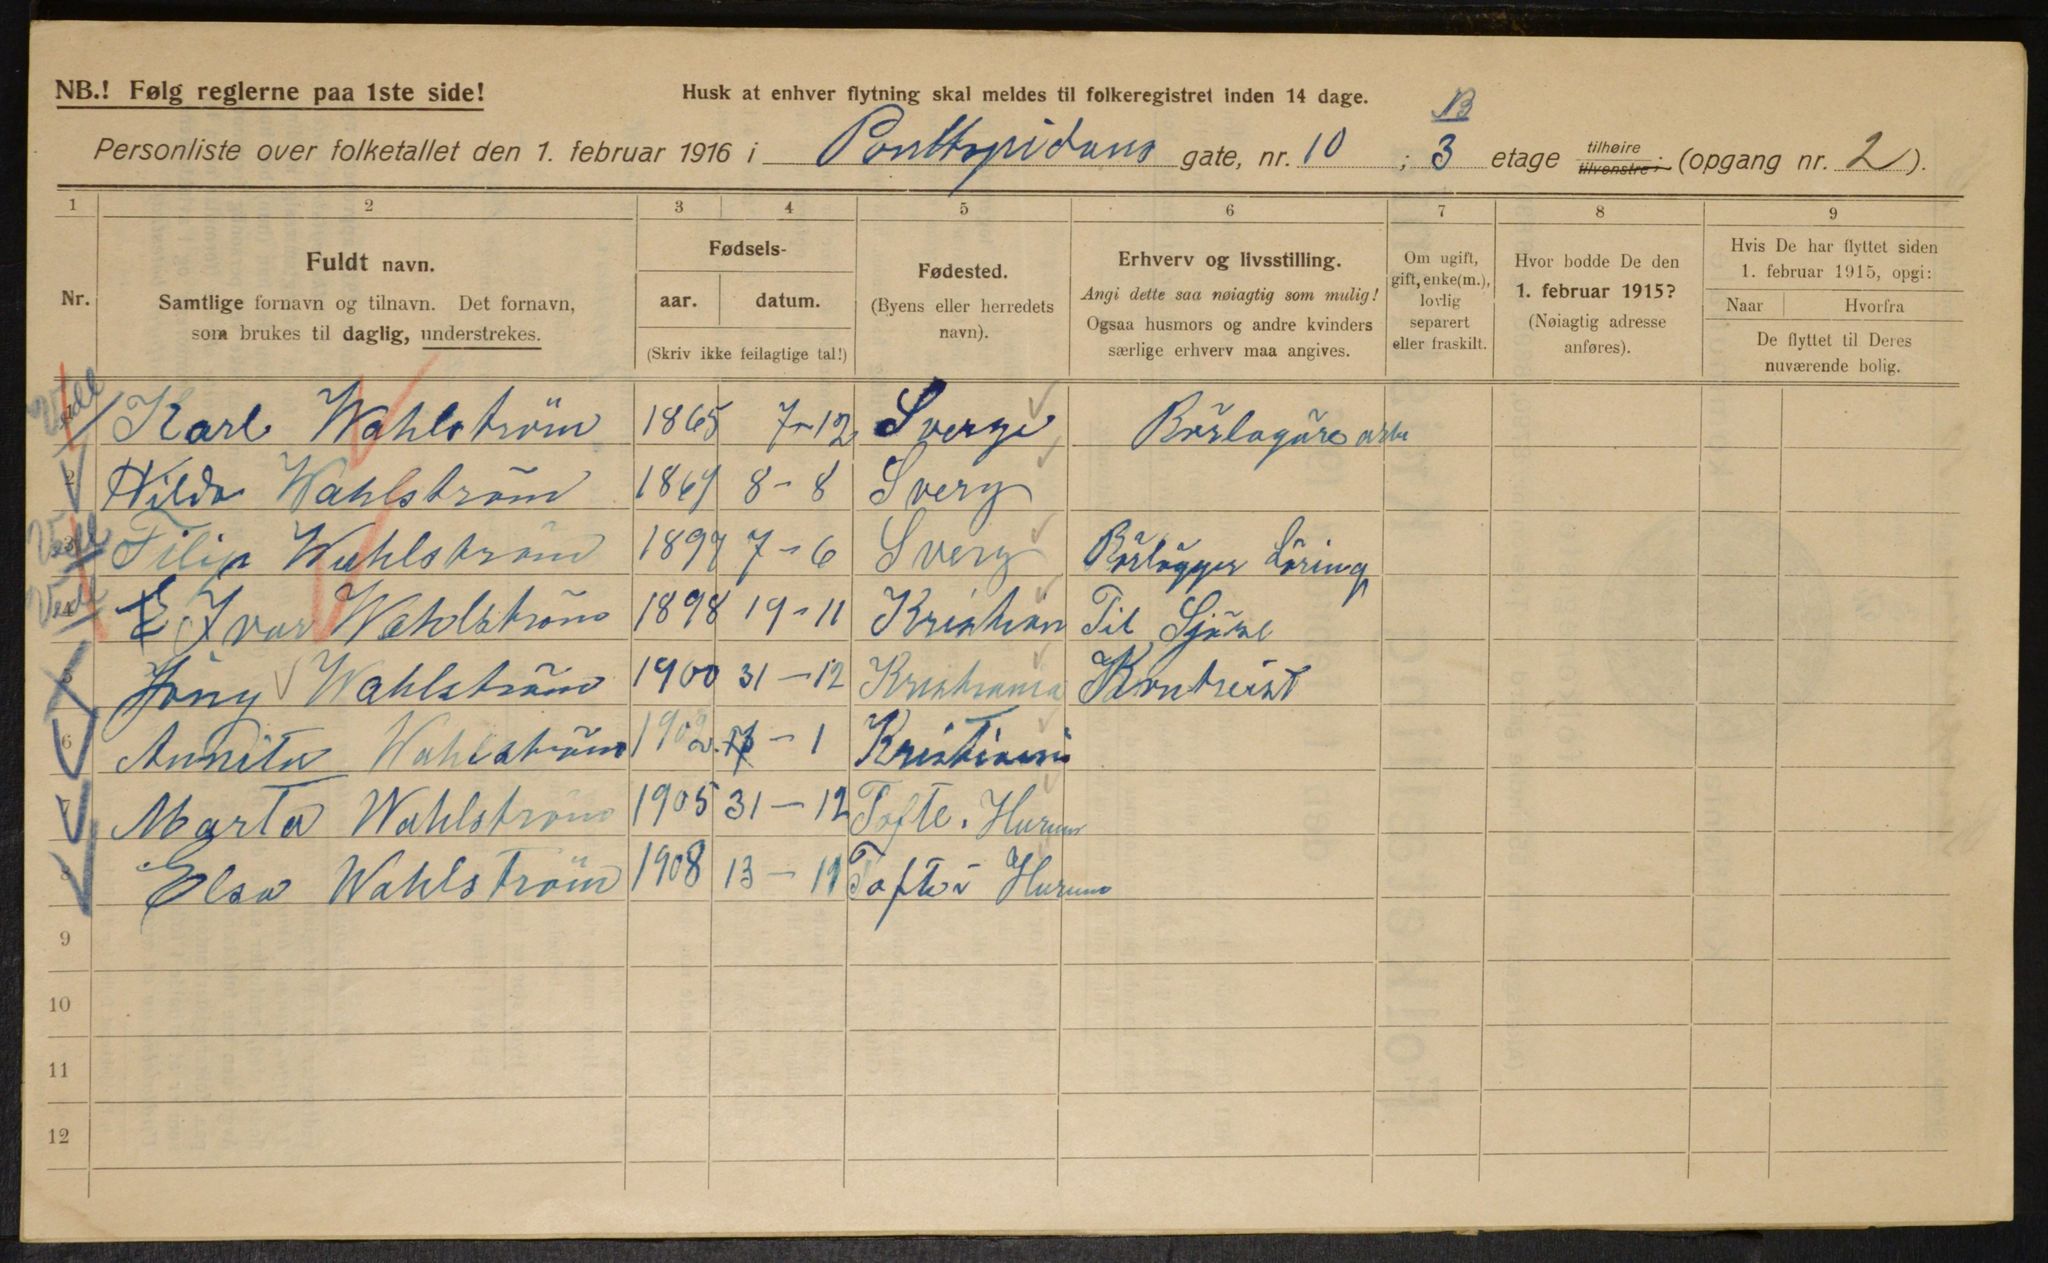 NB.! Følg reglerne paa 1ste side!
Husk at enhver flytning skal meldes til folkeregistret inden 14 dage.
B
Personliste over folketallet den 1. februar 1916 i Ponttopidans gate, nr. 10 ; 3 etage tilhøire tilvenstre; (opgang nr. 2).
1 2 3 4 5 6 7 8 9
Nr.
Fuldt navn.
Samtlige fornavn og tilnavn. Det fornavn,
som brukes til daglig, understrekes.
Fødsels-
aar. datum.
(Skriv ikke feilagtige tal!)
Fødested.
(Byens eller herredets
navn).
Erhverv og livsstilling.
Angi dette saa nøiagtig som mulig!
Ogsaa husmors og andre kvinders
særlige erhverv maa angives.
Om ugift,
gift, enke(m.),
lovlig
separert
eller fraskilt.
Hvor bodde De den
1. februar 1915?
(Nøiagtig adresse
anføres).
Hvis De har flyttet siden
1. februar 1915, opgi:
Naar Hvorfra
De flyttet til Deres
nuværende bolig.
Karl Wahlström 1865 7-12 Sverge Börlagäre arb
2 Hilda Wahlström 8-8 Sverg
3 Filip Wahlström 1897 7-6 Sverg Börlägger Läring
4 E Ivar Wahlström 1898 19-11 Kristian Til Sjöss
5 Jöny Wahlström 1900 31-12 Kristiania Kontrist
6 Annita Wahlström 1902 -1 Kristiania
7 Marta Wahlström 1905 31-12 Tofte. Hurum
8 Elsa Wahlström 1908 13-11 Tofte Hurum
9
10
11
12